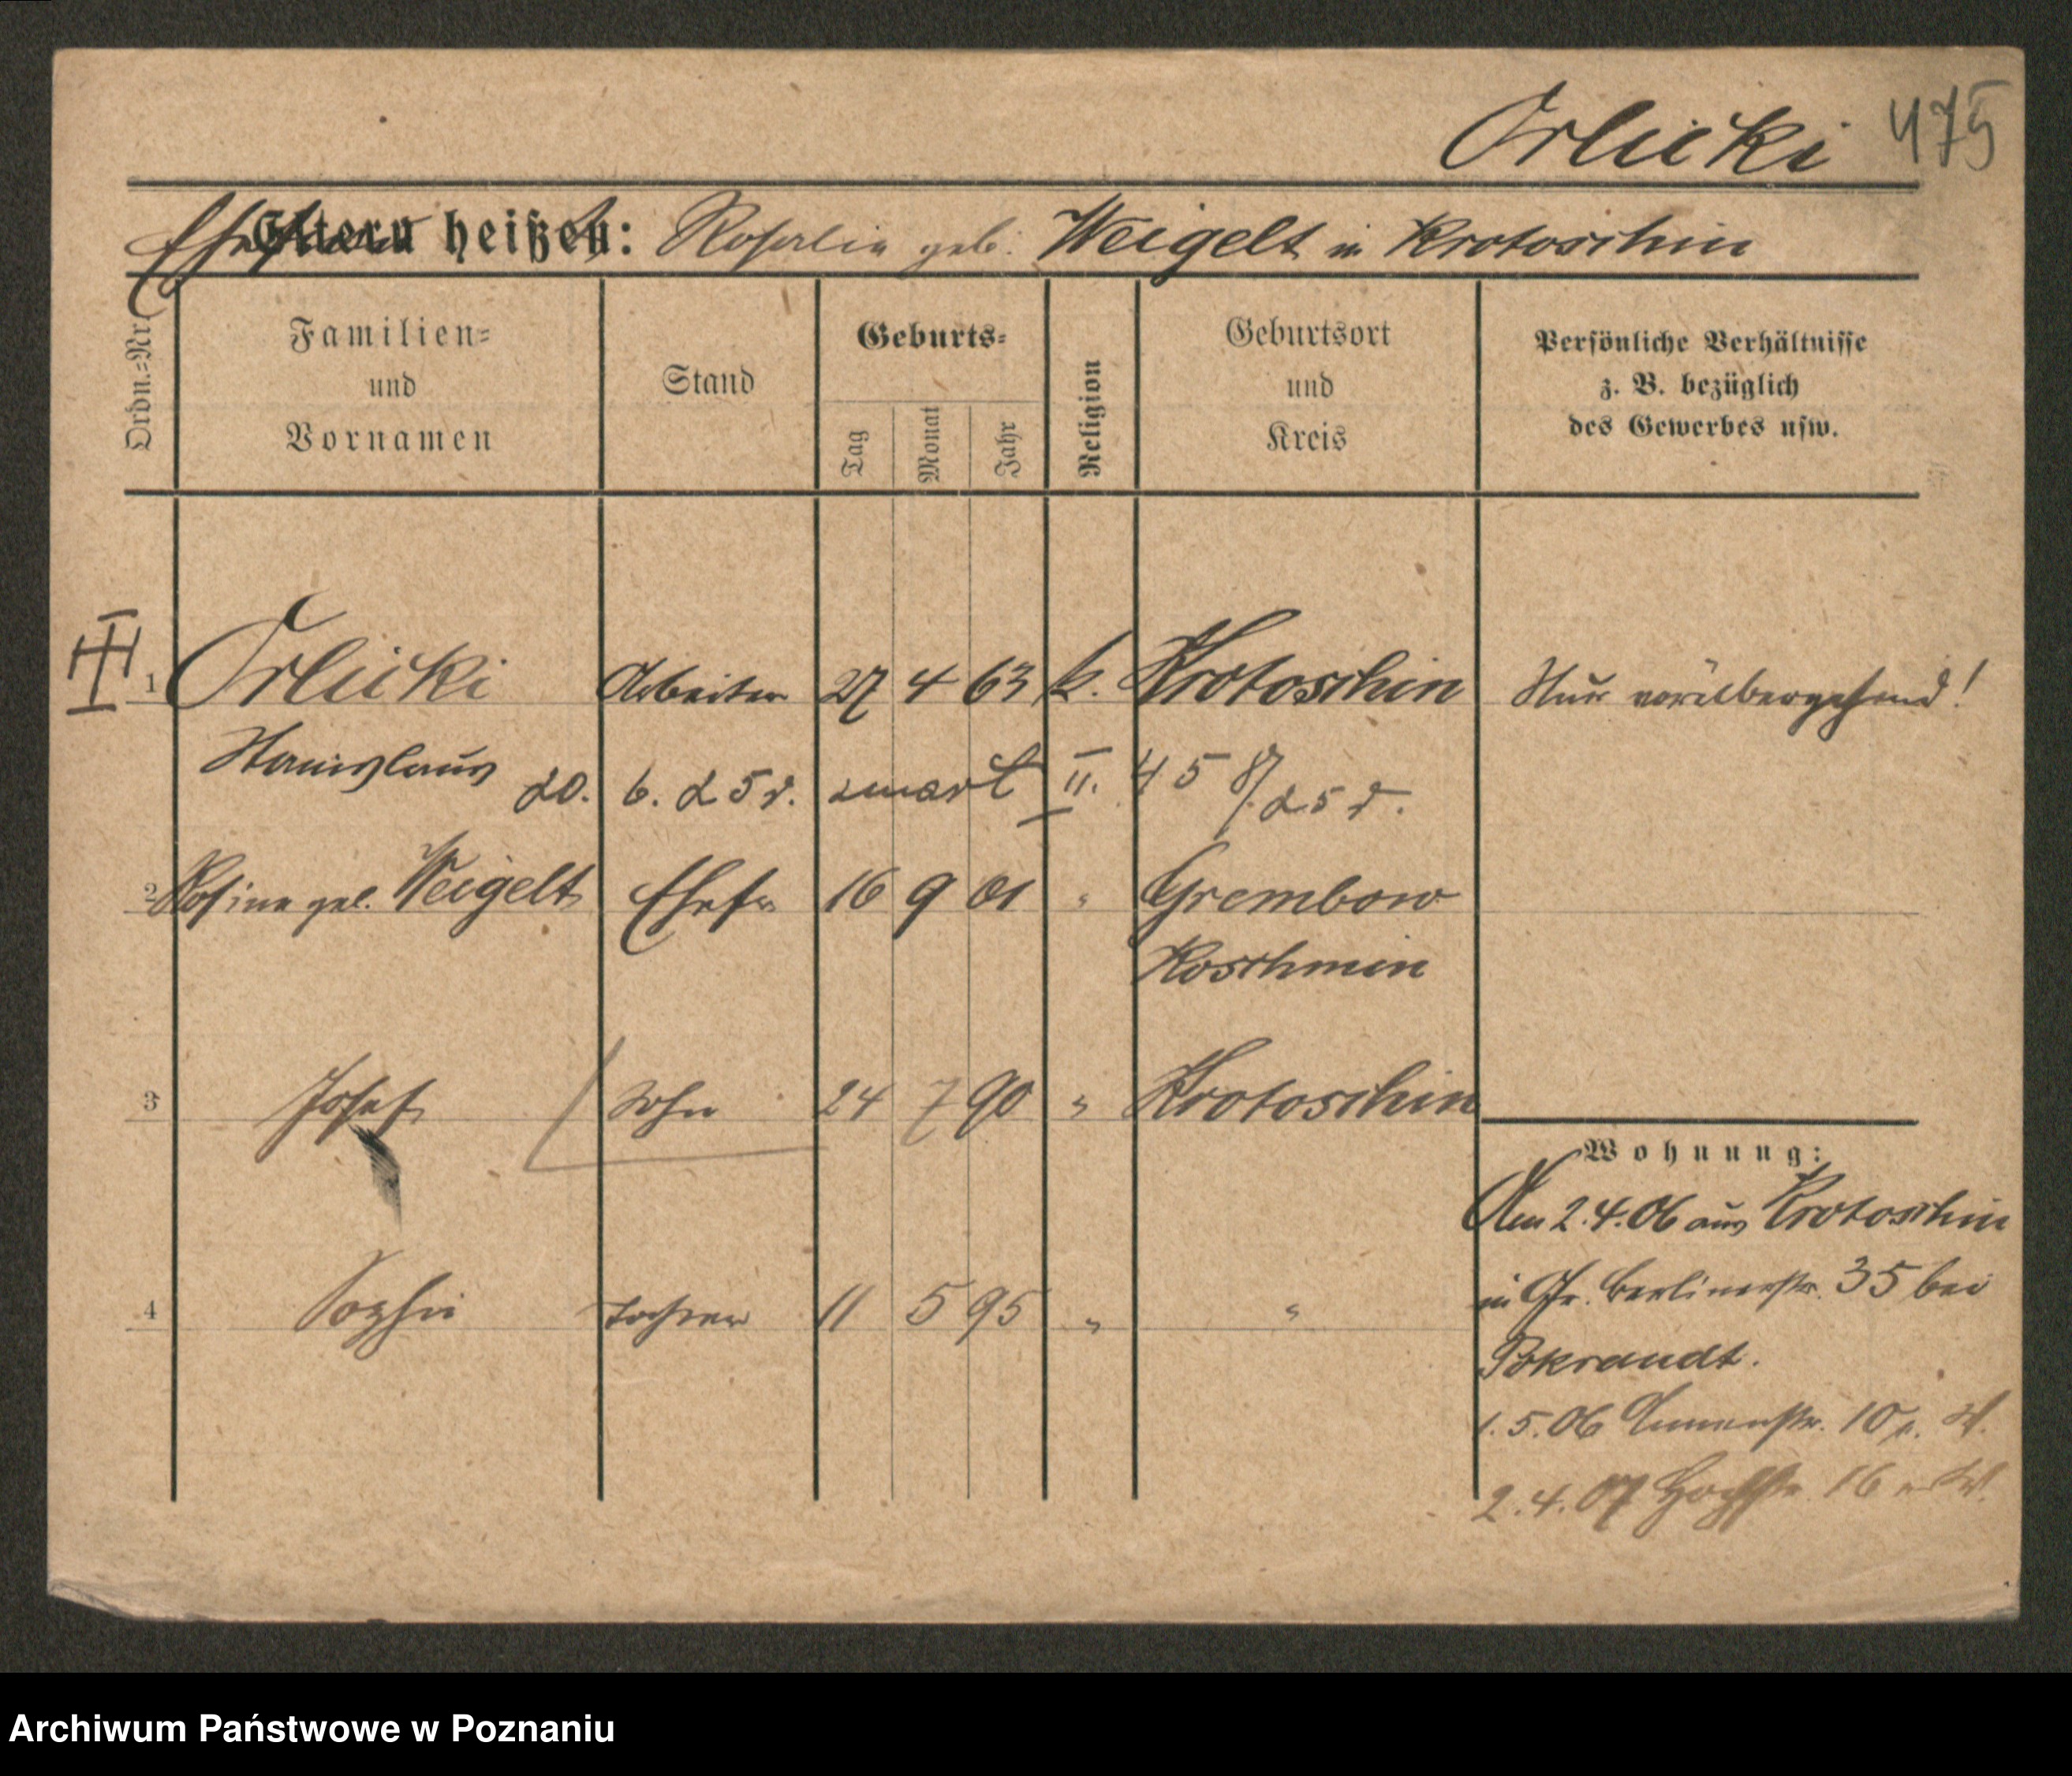 Orlicki 475
Ehefrau heißt: Rosalie geb. Weigelt in Krotoschin
Eltern heißen:
Ordn.-Nr. Familien- und Vornamen Stand Geburts- Tag Monat Jahr Religion Geburtsort und Kreis Persönliche Verhältnisse z. B. bezüglich des Gewerbes usw.
1 Orlicki Arbeiter 27 4 63 k. Krotoschin Nur vorübergehend!
Stanislaus 20. 6. 25 r. zmarł II. 45 8/25 r.
2 Rosine geb. Weigelt Ehefr 16 9 61 " Grembow
Koschmin
3 Josef Sohn 24 7 90 " Krotoschin
Wohnung:
Am 2.4.06 aus Krotoschin
4 Sophie Tochter 11 5 95 " "
in Gr. Berlinerstr. 35 bei
Pokrandt.
1.5.06 10
2.4.07 16